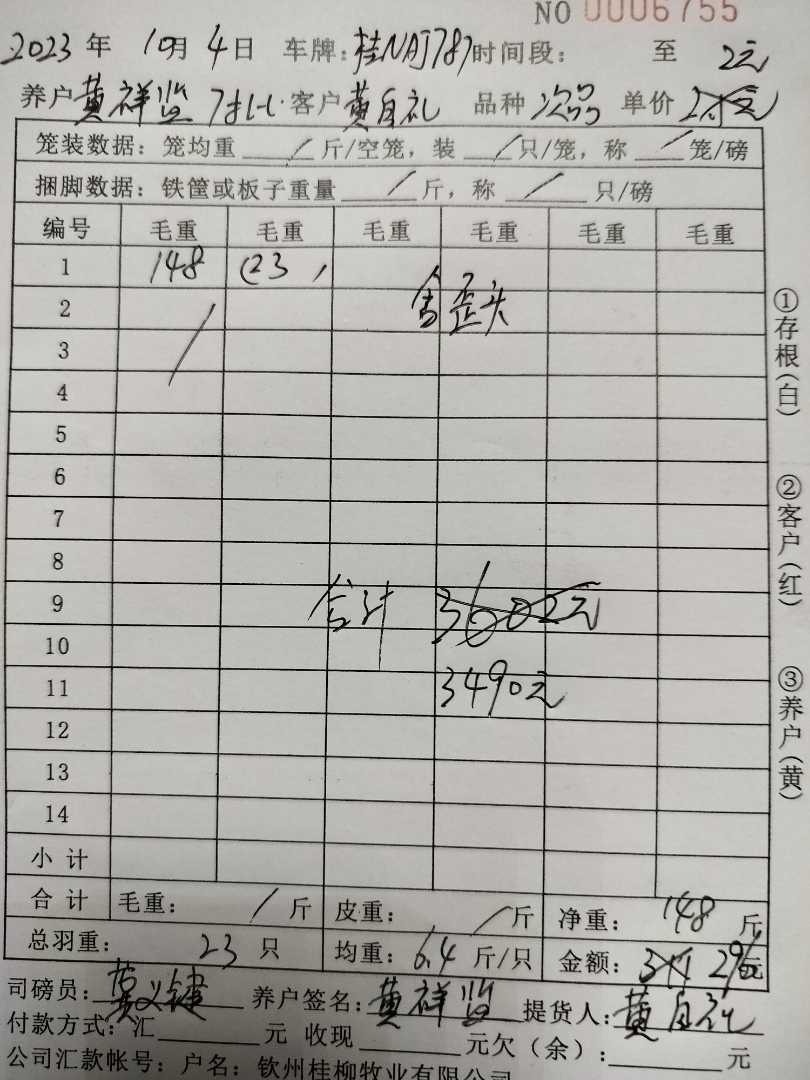 NO 0006755
2023 年 10月 4日 车牌:桂NAJ787 时间段: 至 2元
养户 黄祥监 客户 黄自礼 品种 次品 单价
笼装数据: 笼均重 / 斤/空笼, 装 / 只/笼, 称 / 笼/磅
捆脚数据: 铁筐或板子重量 / 斤, 称 / 只/磅
编号 毛重 毛重 毛重 毛重 毛重 毛重
1 148 (23
2 含歪头
3 /
4
5
6
7
8
9 合计 3602元
10
11 3490元
12
13
14
小 计
合 计 毛重: / 斤 皮重: / 斤 净重: 148 斤
总羽重: 23 只 均重: 6.4 斤/只 金额: 296元
司磅员: 黄义键 养户签名: 黄祥监 提货人: 黄自礼
付款方式: 汇 元 收现 元欠(余): 元
公司汇款帐号: 户名: 钦州桂柳牧业有限公司
①存根(白)
②客户(红)
③养户(黄)